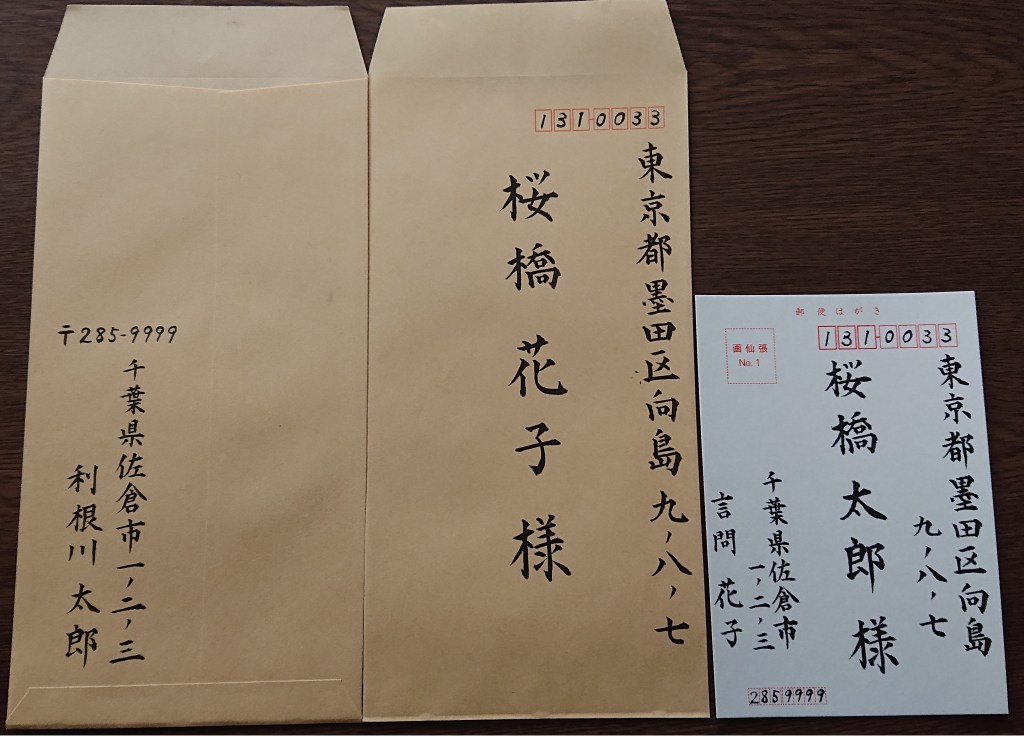 〒285-9999
千葉県佐倉市一、二、三
利根川 太郎
131-0033
東京都墨田区向島九、八、七
桜橋 花子 様
郵便はがき
張仙画
No.1
131-0033
東京都墨田区向島
九、八、七
桜橋 太郎 様
千葉県佐倉市
一、二、三
言問 花子
2859999